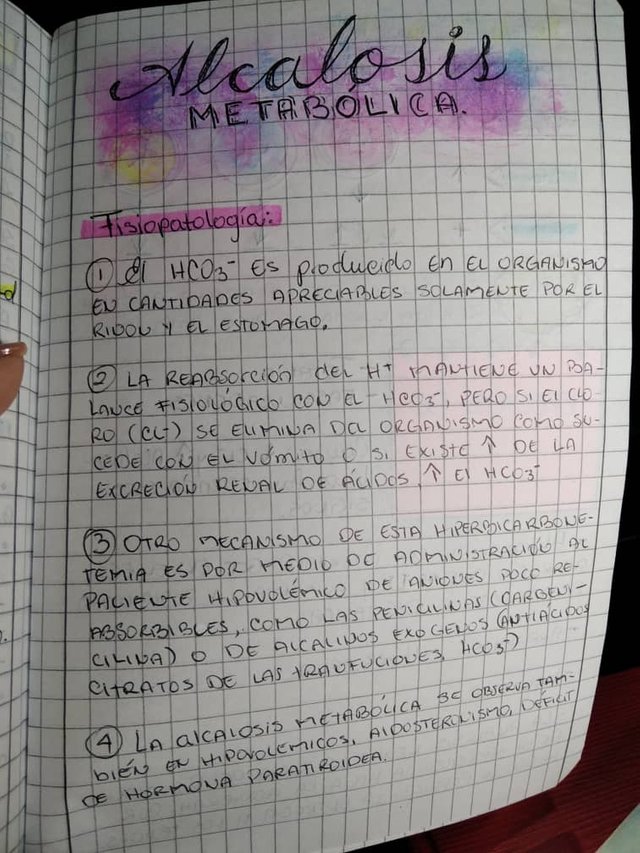 Alcalosis
METABÓLICA.
Fisiopatología:
① El HCO3⁻ ES producido EN EL ORGANISMO
EN CANTIDADES APRECIABLES SOLAMENTE POR EL
RIÑON Y EL ESTOMAGO.
② LA REABSORCIÓN DEL H⁺ MANTIENE UN BA-
LANCE FISIOLÓGICO CON EL HCO3⁻, PERO SI El CLO-
RO (CL⁻) SE ELIMINA DEL ORGANISMO COMO SU-
CEDE CON EL VÓMITO O SI EXISTE ↑ DE LA
EXCRECIÓN RENAL DE ÁCIDOS, ↑ El HCO3⁻
③ OTRO MECANISMO DE ESTA HIPERBICARBONE-
TEMIA ES POR MEDIO DE ADMINISTRACIÓN AL
PACIENTE HIPOVOLÉMICO DE ANIONES POCO RE-
ABSORBIBLES, COMO LAS PENICILINAS (CARBENI-
CILINA) O DE ALCALINOS EXOGENOS (ANTIÁCIDOS
CITRATOS DE LAS TRANFUCIONES, HCO3⁻)
④ LA alCALOSIS METABÓLICA SE OBSERVA TAM-
BIÉN EN HIPOVOLEMICOS, AlDOSTEROLISMO, DÉFICIT
DE HORMONA PARATIROIDEA.